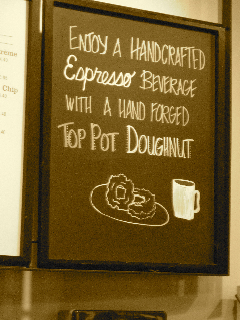 ENJOY A HANDCRAFTED
Espresso BEVERAGE
WITH A HAND FORGED
TOP POT DOUGHNUT
Chip